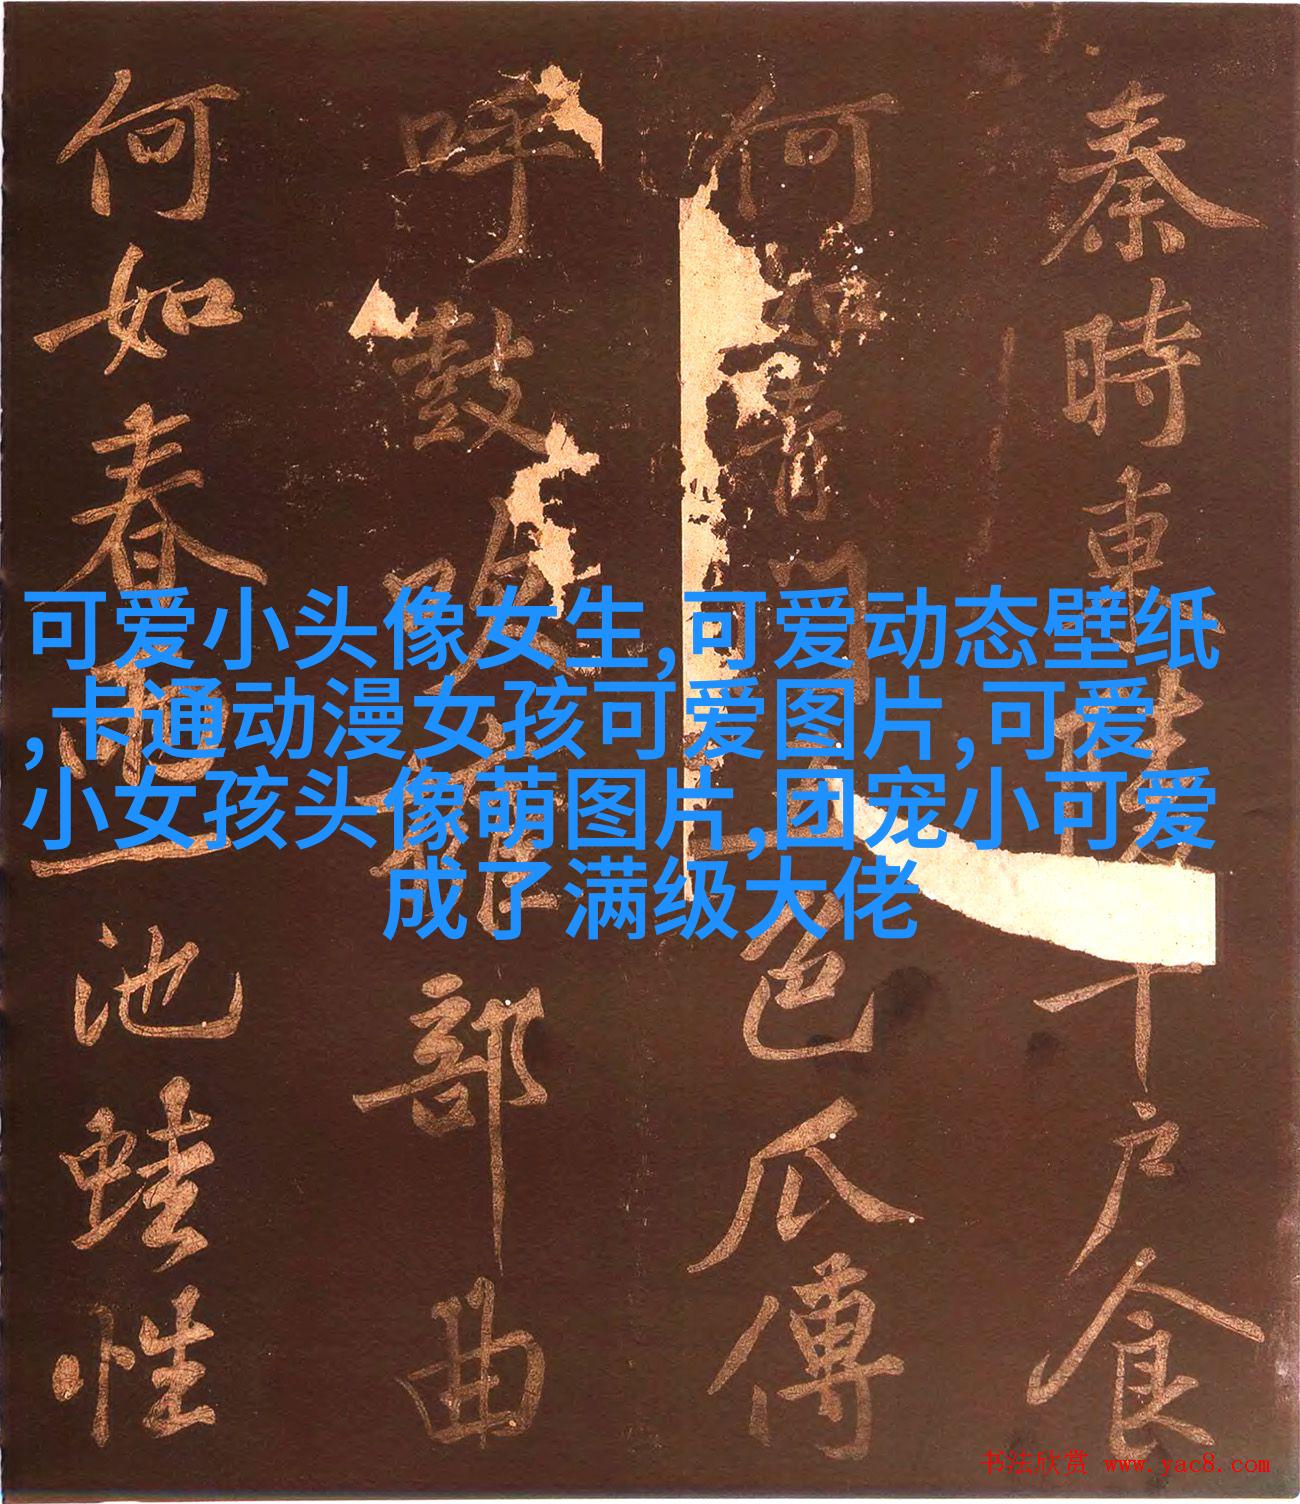 秦時東陵千戶食
何如青門色瓜傅
呼鼓吹部曲
何如春一池蛙性
可爱小头像女生,可爱动态壁纸
,卡通动漫女孩可爱图片,可爱
小女孩头像萌图片,团宠小可爱
成了满级大佬
书法欣赏 www.yac8.com